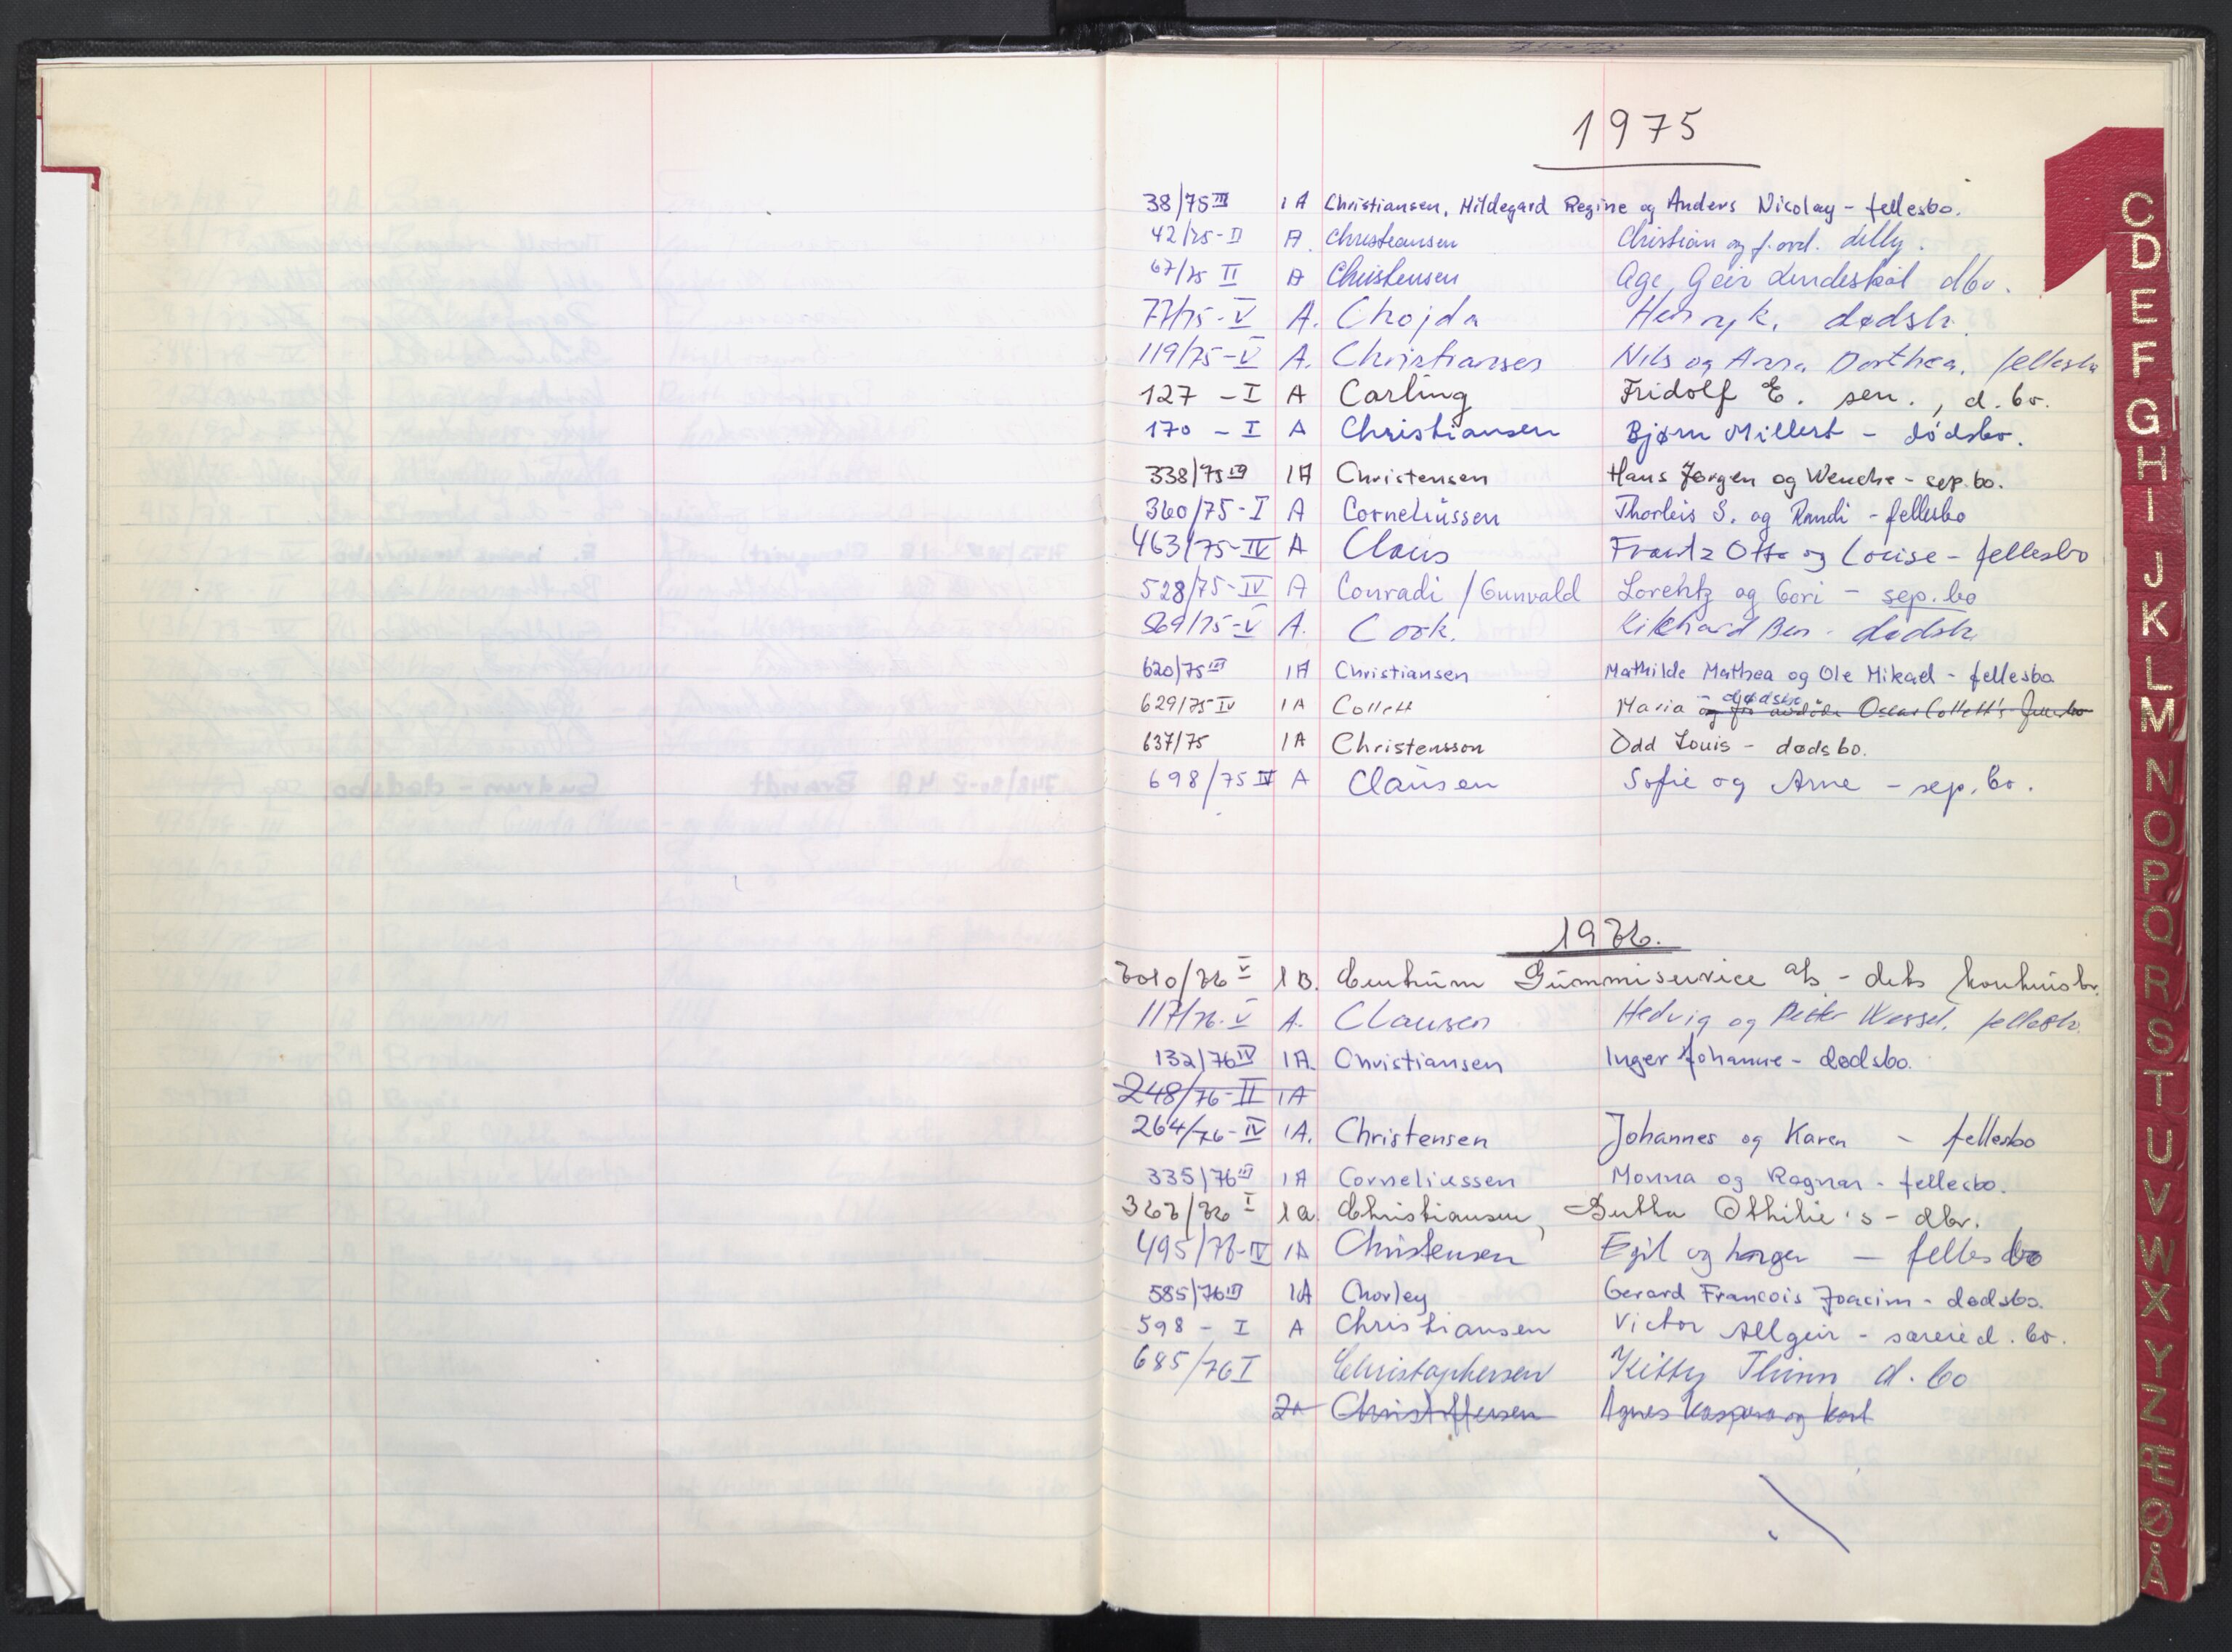 1975
38/75 III 1A Christiansen, Hildegard Regine og Anders Nicolay - fellesbo.
42/75-II A. Christiansen Christian og f. ovd. Lilly.
67/75 II A Christensen Age Geir Lindeskåt dbo.
77/75-V A. Chojda Henryk. dødsb.
119/75-V A. Christiansen Nils og Anna Dorthea. fellesb
127 - I A Carling Fridolf E. sen., d.bo.
170 - I A Christiansen Bjørn Millert - dødsbo.
338/75 III 1A Christensen Hans Jørgen og Wenche - sep.bo.
360/75-I A Corneliussen Thorleis S. og Randi - fellesbo
463/75-IV A Claus Frantz Otto og Louise - fellesbo
528/75-IV A Conradi / Gunvald Lorentz og Gori - sep.bo
569/75-V A. Cook. Rikhard Ben - dødsb
620/75 III 1A Christiansen Mathilde Mathea og Ole Mikael - fellesbo
629/75 IV 1A Collett Maria - dødsbo og Oscar Collett's fellesbo
637/75 1A Christensson Odd Louis - dødsbo.
698/75 IV A Clausen Sofie og Arne - sep.bo.
1976.
3010/76 V 1B. Centrum Gummiservice a/s - dets konkursbo.
117/76-V A. Clausen Hedvig og Peter Wessel. fellesb.
132/76 IV 1A. Christiansen Inger Johanne - dødsbo.
248/76-II 1A
264/76-IV 1A. Christensen Johannes og Karen - fellesbo
335/76 III 1A Corneliussen Monna og Ragnar - fellesbo.
363/76 I 1a. Christiansen, Gutha Othilie's - dbo.
495/76-IV 1A Christensen Egil og - fellesbo
585/76 III 1A Chorley Gerard Francois Joacim - dødsbo.
598 - I A Christiansen Victor Allgeir - særeie d.bo.
685/76 I Christophersen Kitty Thinn d.bo
2A Christoffersen Agnes Kaspara og Karl
C
D
E
F
G
H
I
J
K
L
M
N
O
P
Q
R
S
T
U
V
W
X
Y
Z
Æ
Ø
Å